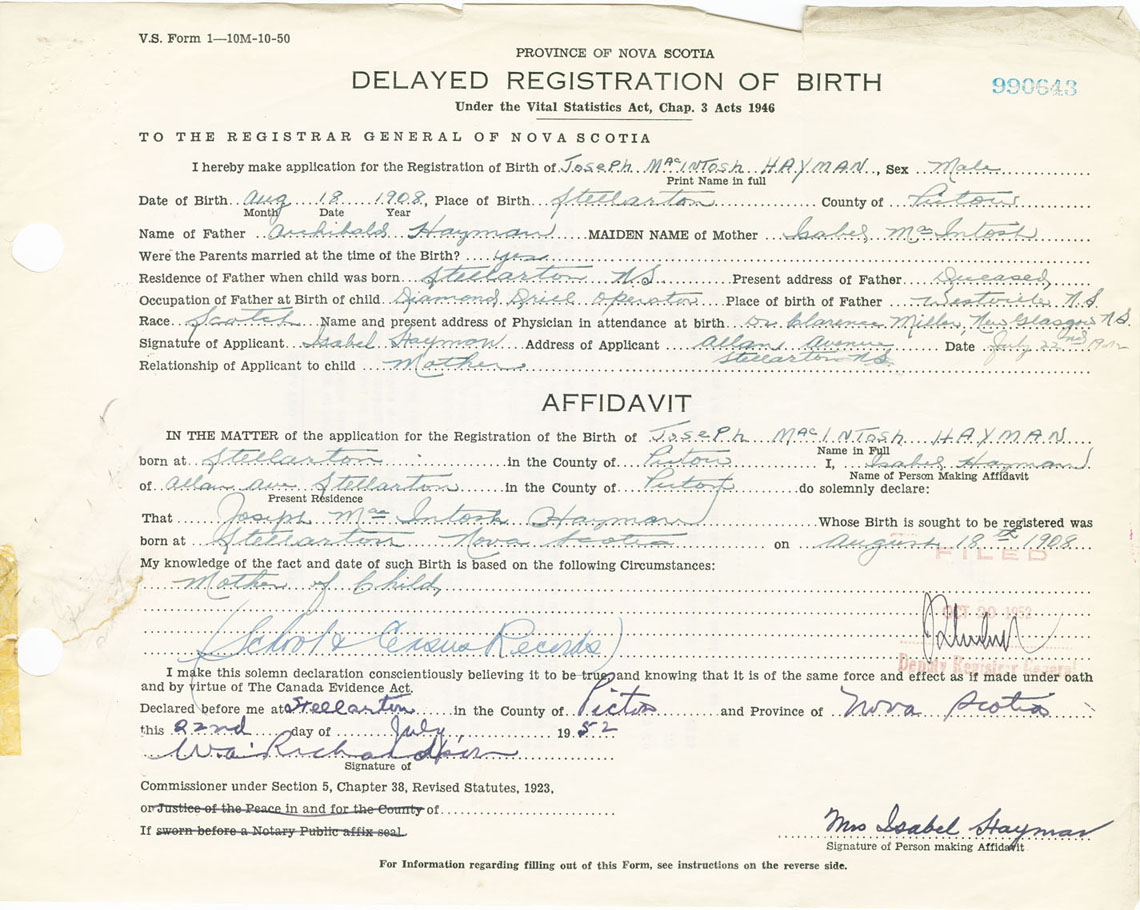 V.S. Form 1—10M-10-50
PROVINCE OF NOVA SCOTIA
DELAYED REGISTRATION OF BIRTH
990643
Under the Vital Statistics Act, Chap. 3 Acts 1946
TO THE REGISTRAR GENERAL OF NOVA SCOTIA
I hereby make application for the Registration of Birth of Joseph MacIntosh HAYMAN, Sex Male
Print Name in full
Date of Birth Aug 18 1908, Place of Birth Stellarton County of Pictou
Month Date Year
Name of Father Archibald Hayman MAIDEN NAME of Mother Isabel MacIntosh
Were the Parents married at the time of the Birth? yes
Residence of Father when child was born Stellarton N.S. Present address of Father Deceased
Occupation of Father at Birth of child Diamond Drill Operator Place of birth of Father Westville N.S.
Race Scotch Name and present address of Physician in attendance at birth Dr Clarence Miller, New Glasgow N.S.
Signature of Applicant Isabel Hayman Address of Applicant Allan Avenue Date July 22nd 1952
Relationship of Applicant to child Mother Stellarton N.S.
AFFIDAVIT
IN THE MATTER of the application for the Registration of the Birth of Joseph MacINTosh HAYMAN
Name in Full
born at Stellarton in the County of Pictou I, Isabel Hayman
Name of Person Making Affidavit
of Allan Ave Stellarton in the County of Pictou do solemnly declare:
Present Residence
That Joseph MacIntosh Hayman Whose Birth is sought to be registered was
born at Stellarton Nova Scotia on August 18th 1908
FILED
My knowledge of the fact and date of such Birth is based on the following Circumstances:
Mother of Child,
OCT 1952
(School & Census Records)
Deputy Registrar General
I make this solemn declaration conscientiously believing it to be true, and knowing that it is of the same force and effect as if made under oath
and by virtue of The Canada Evidence Act.
Declared before me at Stellarton in the County of Pictou and Province of Nova Scotia
this 22nd day of July, 1952
Richardson
Signature of
Commissioner under Section 5, Chapter 38, Revised Statutes, 1923,
or Justice of the Peace in and for the County of
If sworn before a Notary Public affix seal
Mrs Isabel Hayman
Signature of Person making Affidavit
For Information regarding filling out of this Form, see instructions on the reverse side.